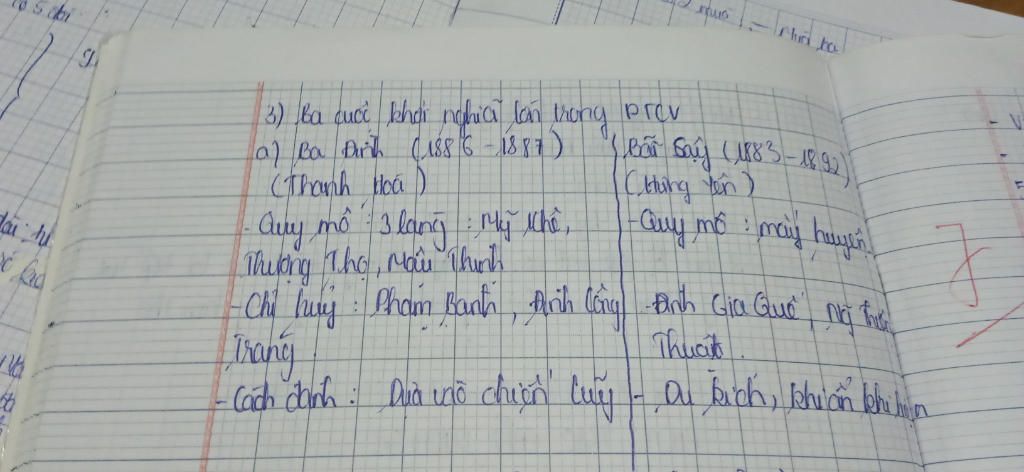 3) Ba cuộc khởi nghĩa lớn trong PTCV
a) Ba Đình (1886 - 1887)
(Thanh Hoá)
- Quy mô : 3 làng : Mỹ Khê,
Thượng Thọ, Mậu Thịnh
- Chỉ huy : Phạm Bành, Đinh Công
Tráng
- Cách đánh : Dựa vào chiến luỹ
Bãi Sậy (1883 - 1892)
(Hưng Yên)
- Quy mô : mấy huyện
- Đinh Gia Quế, Ng Thiện
Thuật.
- Du kích, khi ẩn khi hiện